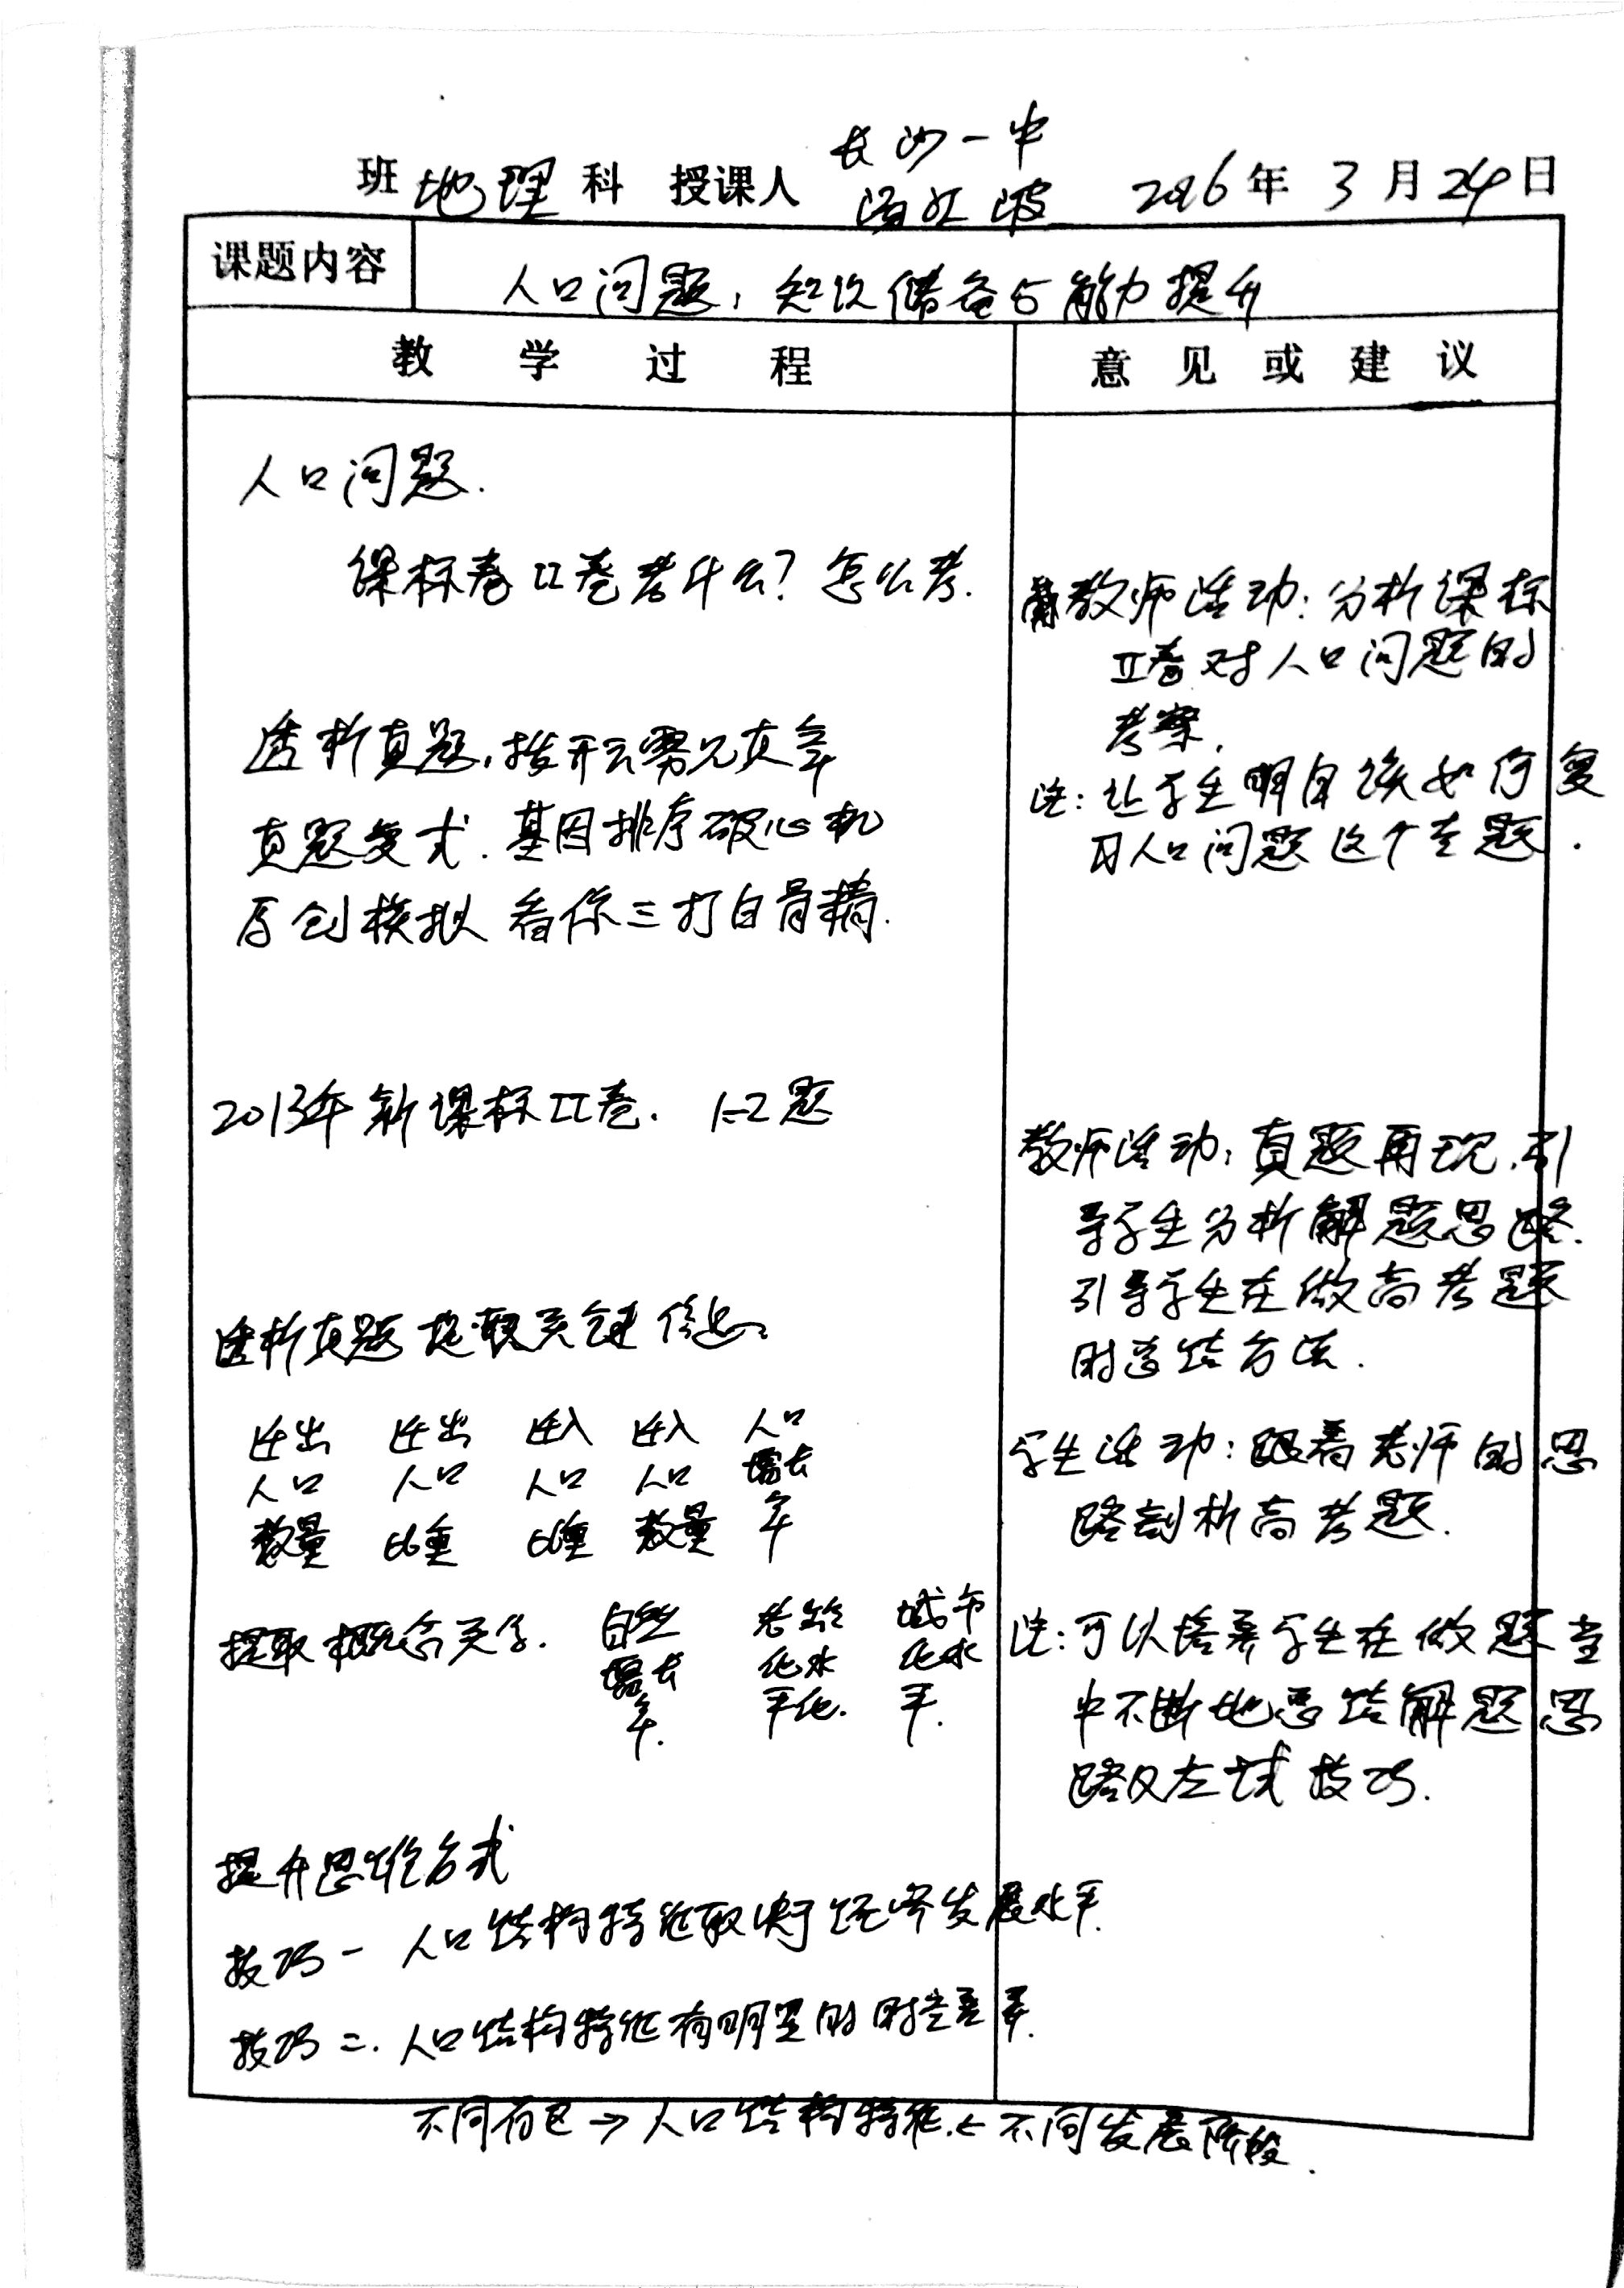 长沙一中
班 地理 科 授课人 江波 2016年 3月 24日
课题内容 人口问题：知识储备与能力提升
教学过程 意见或建议
人口问题.
课标卷II卷考什么？怎么考.
透析真题，拨开云雾见真章
真题变式.基因排序破心机
原创模拟 看你三打白骨精.
2013年新课标II卷. 1-2题
透析真题 提取关键信息
迁出 迁出 迁入 迁入 人口
人口 人口 人口 人口 增长
数量 比重 比重 数量 率
提取概念关系. 自然 老龄 城市
增长 化水 化水
率. 平化. 平.
提升思维方式
技巧一 人口结构特征取决于经济发展水平.
技巧二.人口结构特征有明显的时空差异.
不同 → 人口结构特征.← 不同发展阶段.
教师活动：分析课标
II卷对人口问题的
考察.
注：让学生明白该如何复
习人口问题这个专题.
教师活动：真题再现.引
导学生分析解题思路.
引导学生在做高考题
时总结方法.
学生活动：跟着老师的思
路剖析高考题.
注：可以培养学生在做题当
中不断地总结解题思
路及应试技巧.